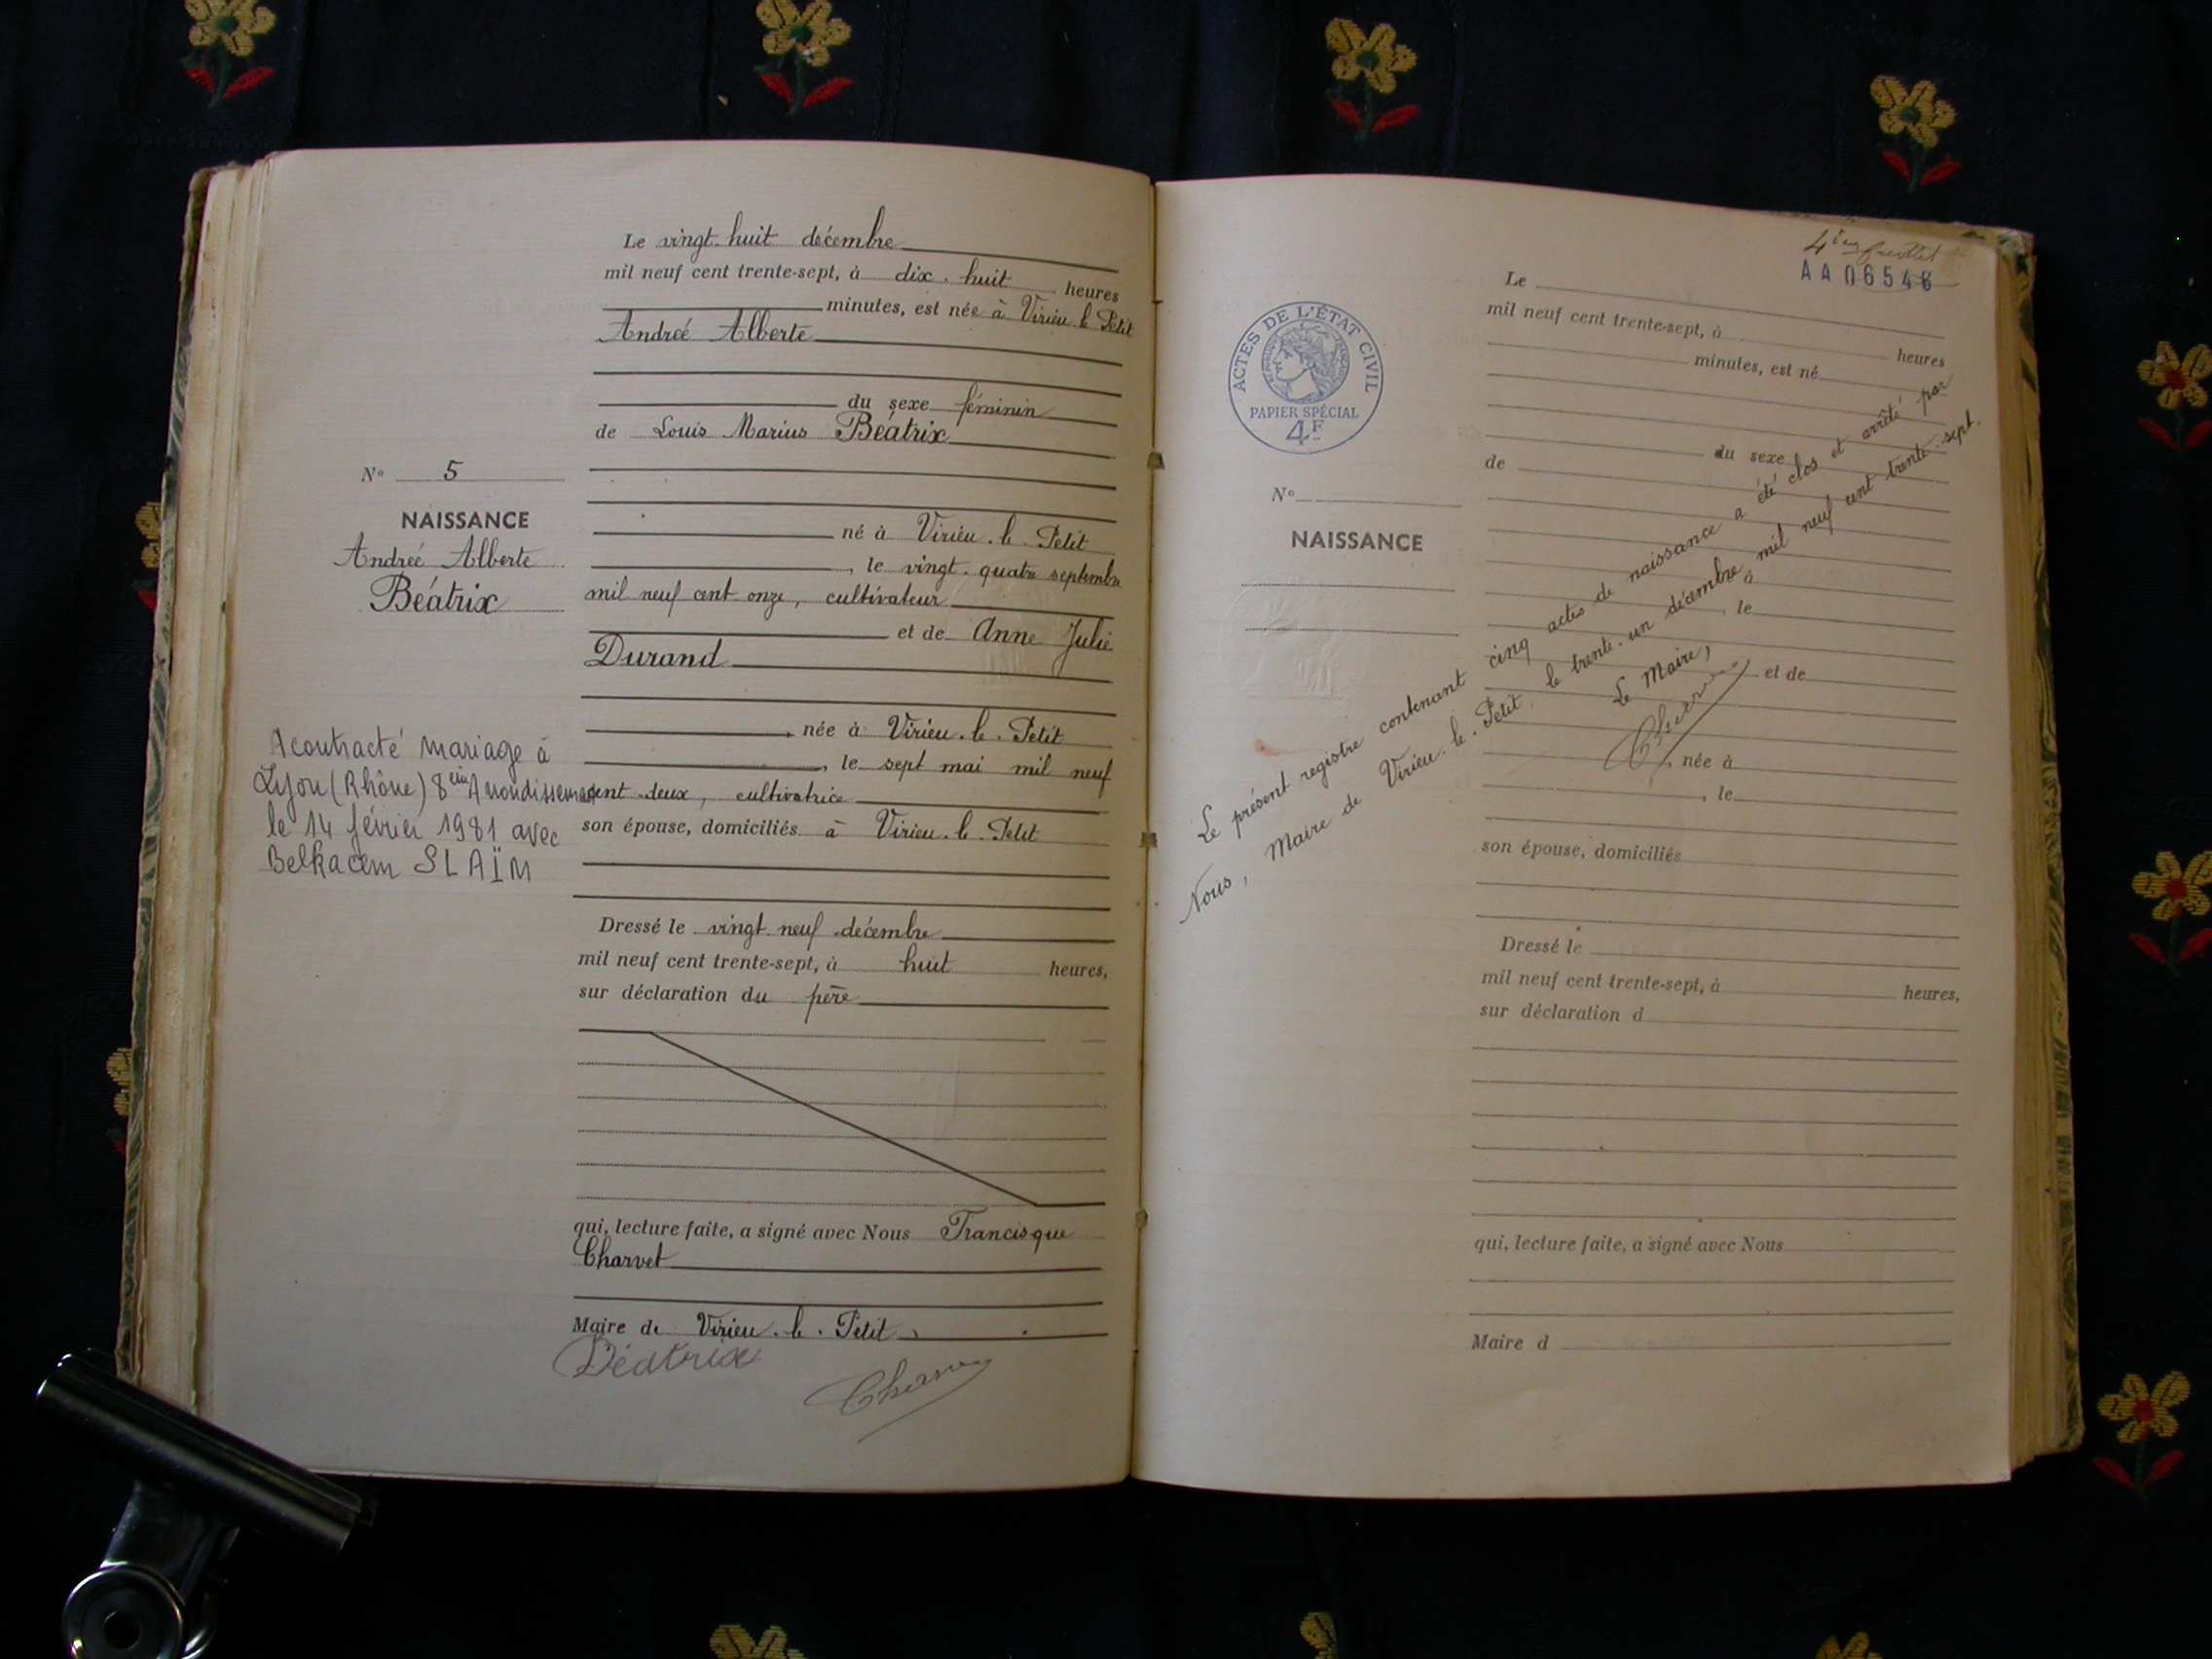 Le vingt-huit décembre
mil neuf cent trente-sept, à dix-huit heures
minutes, est née à Virieu-le-Petit
Andreé Alberte
du sexe féminin
de Louis Marius Béatrix
né à Virieu-le-Petit
, le vingt-quatre septembre
mil neuf cent onze, cultivateur
et de Anne Julie
Durand
, née à Virieu-le-Petit
, le sept mai mil neuf
cent deux, cultivatrice
son épouse, domiciliés à Virieu-le-Petit
Dressé le vingt-neuf décembre
mil neuf cent trente-sept, à huit heures,
sur déclaration du père
qui, lecture faite, a signé avec Nous Francisque
Charvet
Maire de Virieu-le-Petit,
Béatrix
Charvet
N° 5
NAISSANCE
Andreé Alberte
Béatrix
A contracté mariage à
Lyon (Rhône) 8ème Arrondissement
le 14 février 1981 avec
Belkacem SLAÏM
4ième feuillet
AA06546
ACTES DE L'ÉTAT CIVIL
PAPIER SPÉCIAL
4F
N°
NAISSANCE
Le
mil neuf cent trente-sept, à heures
minutes, est né
du sexe
de
à
, le
et de
, née à
, le
son épouse, domiciliés
Dressé le
mil neuf cent trente-sept, à heures,
sur déclaration d
qui, lecture faite, a signé avec Nous
Maire d
Le présent registre contenant cinq actes de naissance a été clos et arrêté par
Nous, Maire de Virieu-le-Petit, le trente-un décembre mil neuf cent trente-sept.
Le Maire,
Charvet